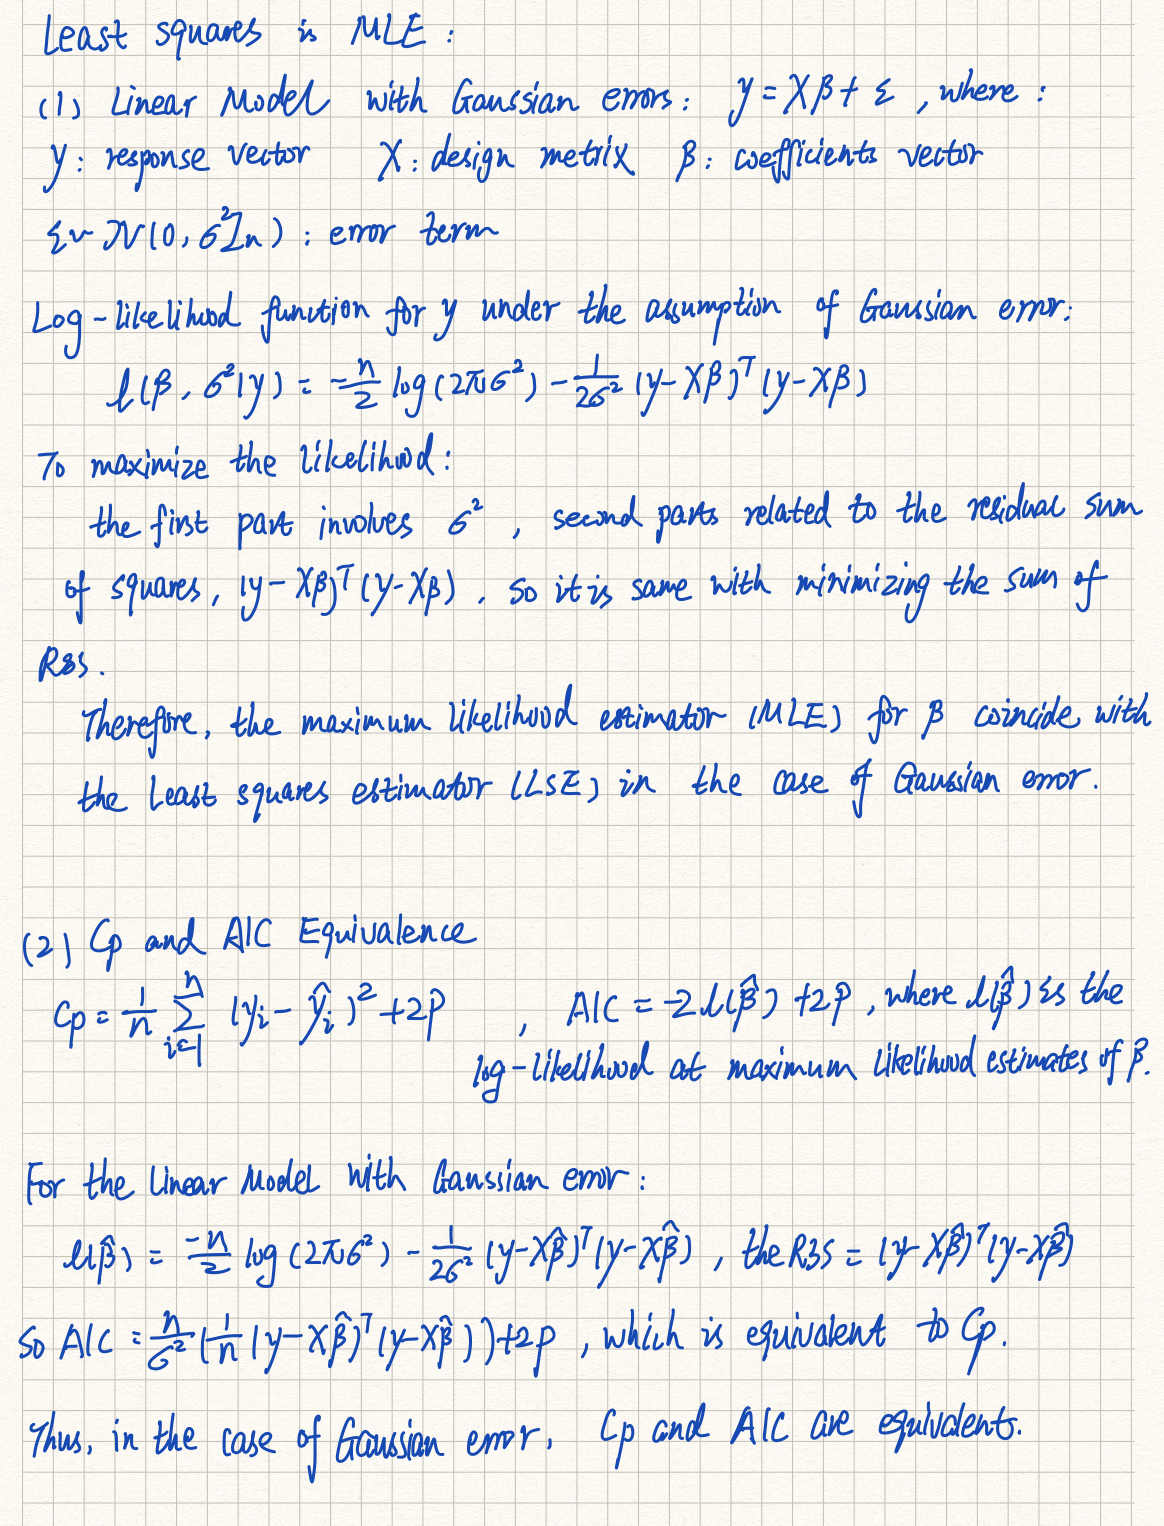 Least squares is MLE:
(1) Linear Model with Gaussian errors: y = Xβ + ε, where:
y: response vector X: design metrix β: coefficients vector
ε ~ N(0, σ²Iₙ): error term
Log-likelihood function for y under the assumption of Gaussian error:
l(β, σ²|y) = -n/2 log(2πσ²) - 1/(2σ²) (y-Xβ)ᵀ(y-Xβ)
To maximize the likelihood:
the first part involves σ², second parts related to the residual sum
of squares, (y-Xβ)ᵀ(y-Xβ), so it is same with minimizing the sum of
RSS.
Therefore, the maximum likelihood estimator (MLE) for β coincide with
the Least squares estimator (LSE) in the case of Gaussian error.
(2) Cp and AIC Equivalence
Cp = 1/n Σᵢ₌₁ⁿ (yᵢ - ŷᵢ)² + 2p, AIC = -2l(β̂) + 2p, where l(β̂) is the
log-likelihood at maximum likelihood estimates of β.
For the Linear Model with Gaussian error:
l(β̂) = -n/2 log(2πσ²) - 1/(2σ²) (y-Xβ̂)ᵀ(y-Xβ̂), the RSS = (y-Xβ̂)ᵀ(y-Xβ̂)
So AIC = n/σ² (1/n (y-Xβ̂)ᵀ(y-Xβ̂)) + 2p, which is equivalent to Cp.
Thus, in the case of Gaussian error, Cp and AIC are equivalents.